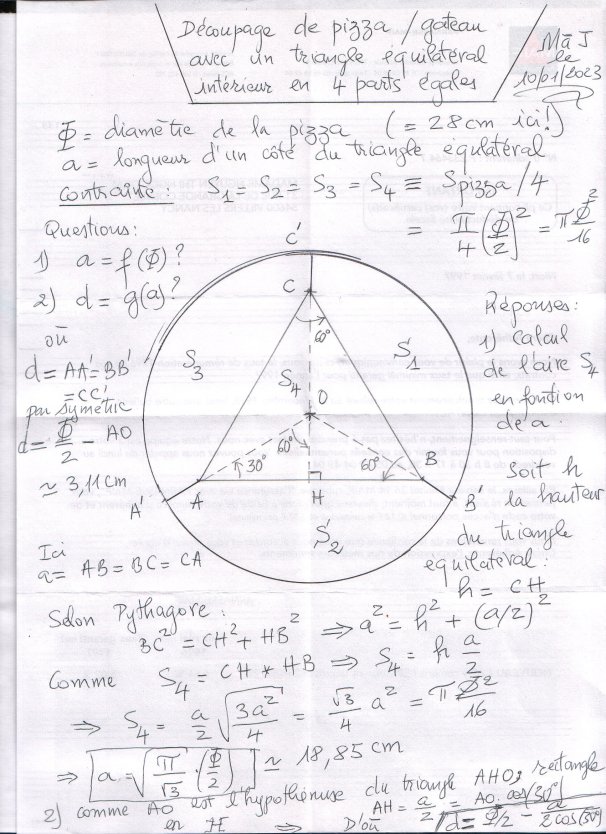 Découpage de pizza / gateau
avec un triangle équilatéral
intérieur en 4 parts égales
Mã J
le
10/01/2023
Φ = diamètre de la pizza (= 28 cm ici!)
a = longueur d'un côté du triangle équlatéral
Contrainte: S1 = S2 = S3 = S4 ≡ Spizza / 4
= π/4 (Φ/2)² = π Φ²/16
Questions:
1) a = f(Φ)?
2) d = g(a)?
où
d = AA' = BB'
= CC'
par symétrie
d = Φ/2 - AO
≃ 3,11 cm
Ici
a = AB = BC = CA
C'
C
60°
S3
S1
S4
O
60°
30°
60°
A
B
A'
B'
H
S2
Réponses:
1) calcul
de l'aire S4
en fontion
de a.
Soit h
la hauteur
du triangle
equilatéral:
h = CH
Selon Pythagore:
BC² = CH² + HB² ⇒ a² = h² + (a/2)²
Comme S4 = CH * HB ⇒ S4 = h a/2
⇒ S4 = a/2 √(3a²/4) = √3/4 a² = π Φ²/16
⇒ a = √(π/√3) · (Φ/2) ≃ 18,85 cm
2) comme AO est l'hypothénuse du triangle AHO, rectangle
en H ⇒ AH = a/2 = AO. cos(30°)
D'où d = Φ/2 - a/(2 cos(30°))